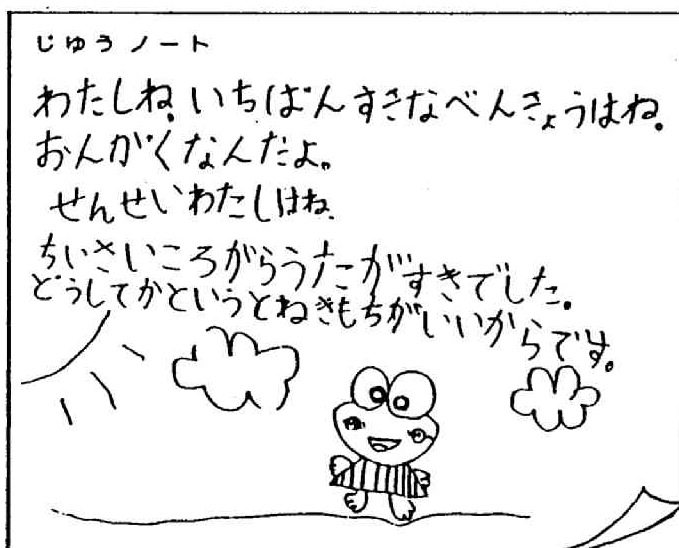 じゆうノート
わたしね、いちばんすきなべんきょうはね。
おんがくなんだよ。
せんせいわたしはね、
ちいさいころがらうたがすきでした。
どうしてかというとねきもちがいいからです。